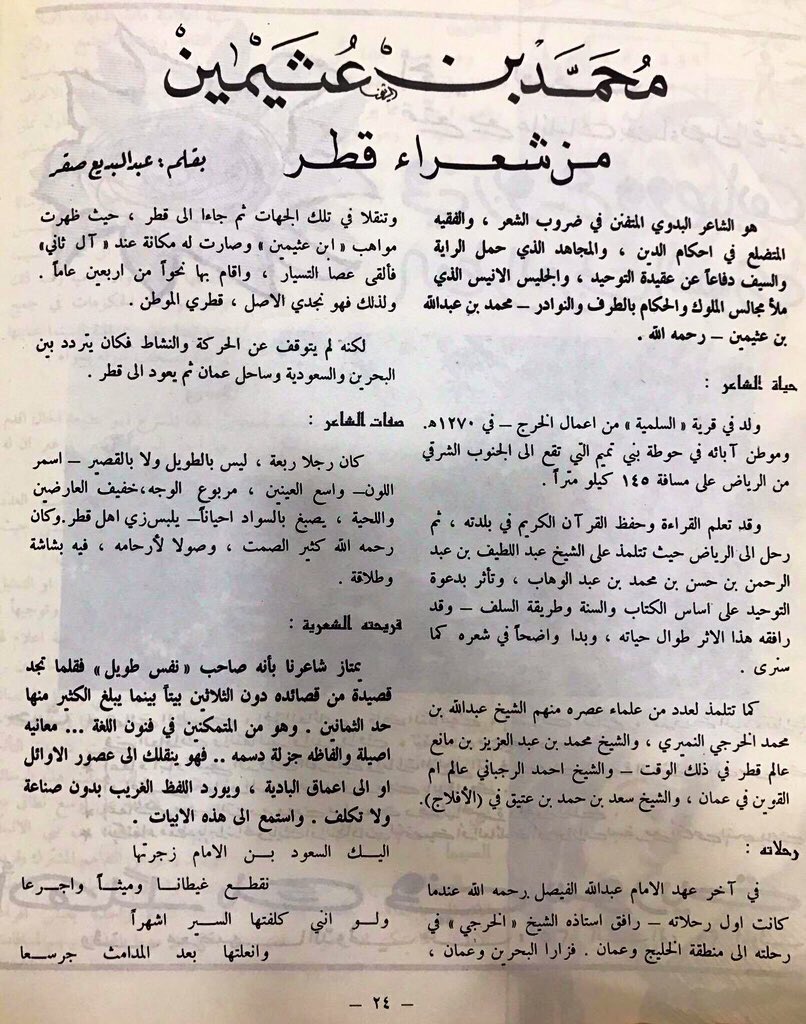 محمد بن عثيمين
من شعراء قطر
بقلم : عبد البديع صقر
هو الشاعر البدوي المتفنن في ضروب الشعر ، والفقيه
المتضلع في احكام الدين ، والمجاهد الذي حمل الراية
والسيف دفاعاً عن عقيدة التوحيد ، والجليس الانيس الذي
ملأ مجالس الملوك والحكام بالطرف والنوادر – محمد بن عبدالله
بن عثيمين – رحمه الله .
حياة الشاعر :
ولد في قرية «السلمية» من اعمال الخرج – في ١٢٧٠هـ.
وموطن آبائه في حوطة بني تميم التي تقع الى الجنوب الشرقي
من الرياض على مسافة ١٤٥ كيلو متراً .
وقد تعلم القراءة وحفظ القرآن الكريم في بلدته ، ثم
رحل الى الرياض حيث تتلمذ على الشيخ عبد اللطيف بن عبد
الرحمن بن حسن بن محمد بن عبد الوهاب ، وتأثر بدعوة
التوحيد على اساس الكتاب والسنة وطريقة السلف – وقد
رافقه هذا الاثر طوال حياته ، وبدا واضحاً في شعره كما
سنرى .
كما تتلمذ لعدد من علماء عصره منهم الشيخ عبدالله بن
محمد الخرجي النميري ، والشيخ محمد بن عبد العزيز بن مانع
عالم قطر في ذلك الوقت – والشيخ احمد الرجباني عالم ام
القوين في عمان ، والشيخ سعد بن حمد بن عتيق في (الأفلاج).
رحلاته :
في آخر عهد الامام عبدالله الفيصل رحمه الله عندما
كانت اول رحلاته – رافق استاذه الشيخ «الخرجي» في
رحلته الى منطقة الخليج وعمان . فزارا البحرين وعمان ،
وتنقلا في تلك الجهات ثم جاءا الى قطر ، حيث ظهرت
مواهب «ابن عثيمين» وصارت له مكانة عند «آل ثاني»
فألقى عصا التسيار ، واقام بها نحواً من اربعين عاماً .
ولذلك فهو نجدي الاصل ، قطري الموطن .
لكنه لم يتوقف عن الحركة والنشاط فكان يتردد بين
البحرين والسعودية وساحل عمان ثم يعود الى قطر .
صفات الشاعر :
كان رجلا ربعة ، ليس بالطويل ولا بالقصير – اسمر
اللون– واسع العينين ، مربوع الوجه،خفيف العارضين
واللحية ، يصبغ بالسواد احياناً– يلبس زي اهل قطر.وكان
رحمه الله كثير الصمت ، وصولا لأرحامه ، فيه بشاشة
وطلاقة .
قريحته الشعرية :
يمتاز شاعرنا بأنه صاحب «نفس طويل» فقلما تجد
قصيدة من قصائده دون الثلاثين بيتاً بينما يبلغ الكثير منها
حد الثمانين . وهو من المتمكنين في فنون اللغة ... معانيه
اصيلة والفاظه جزلة دسمه .. فهو ينقلك الى عصور الاوائل
او الى اعماق البادية ، ويورد اللفظ الغريب بدون صناعة
ولا تكلف . واستمع الى هذه الابيات .
اليك السعود بن الامام زجرتها
نقطع غيطانا وميثاً واجرعا
ولو انني كلفتها السير اشهراً
وانعلتها بعد المدامث جرسعا
– ٢٤ –